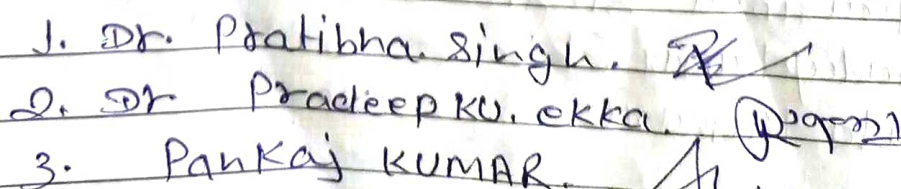 1. Dr. Pratibha Singh.
2. Dr Pradeep KU. ekka.
3. Pankaj KUMAR.